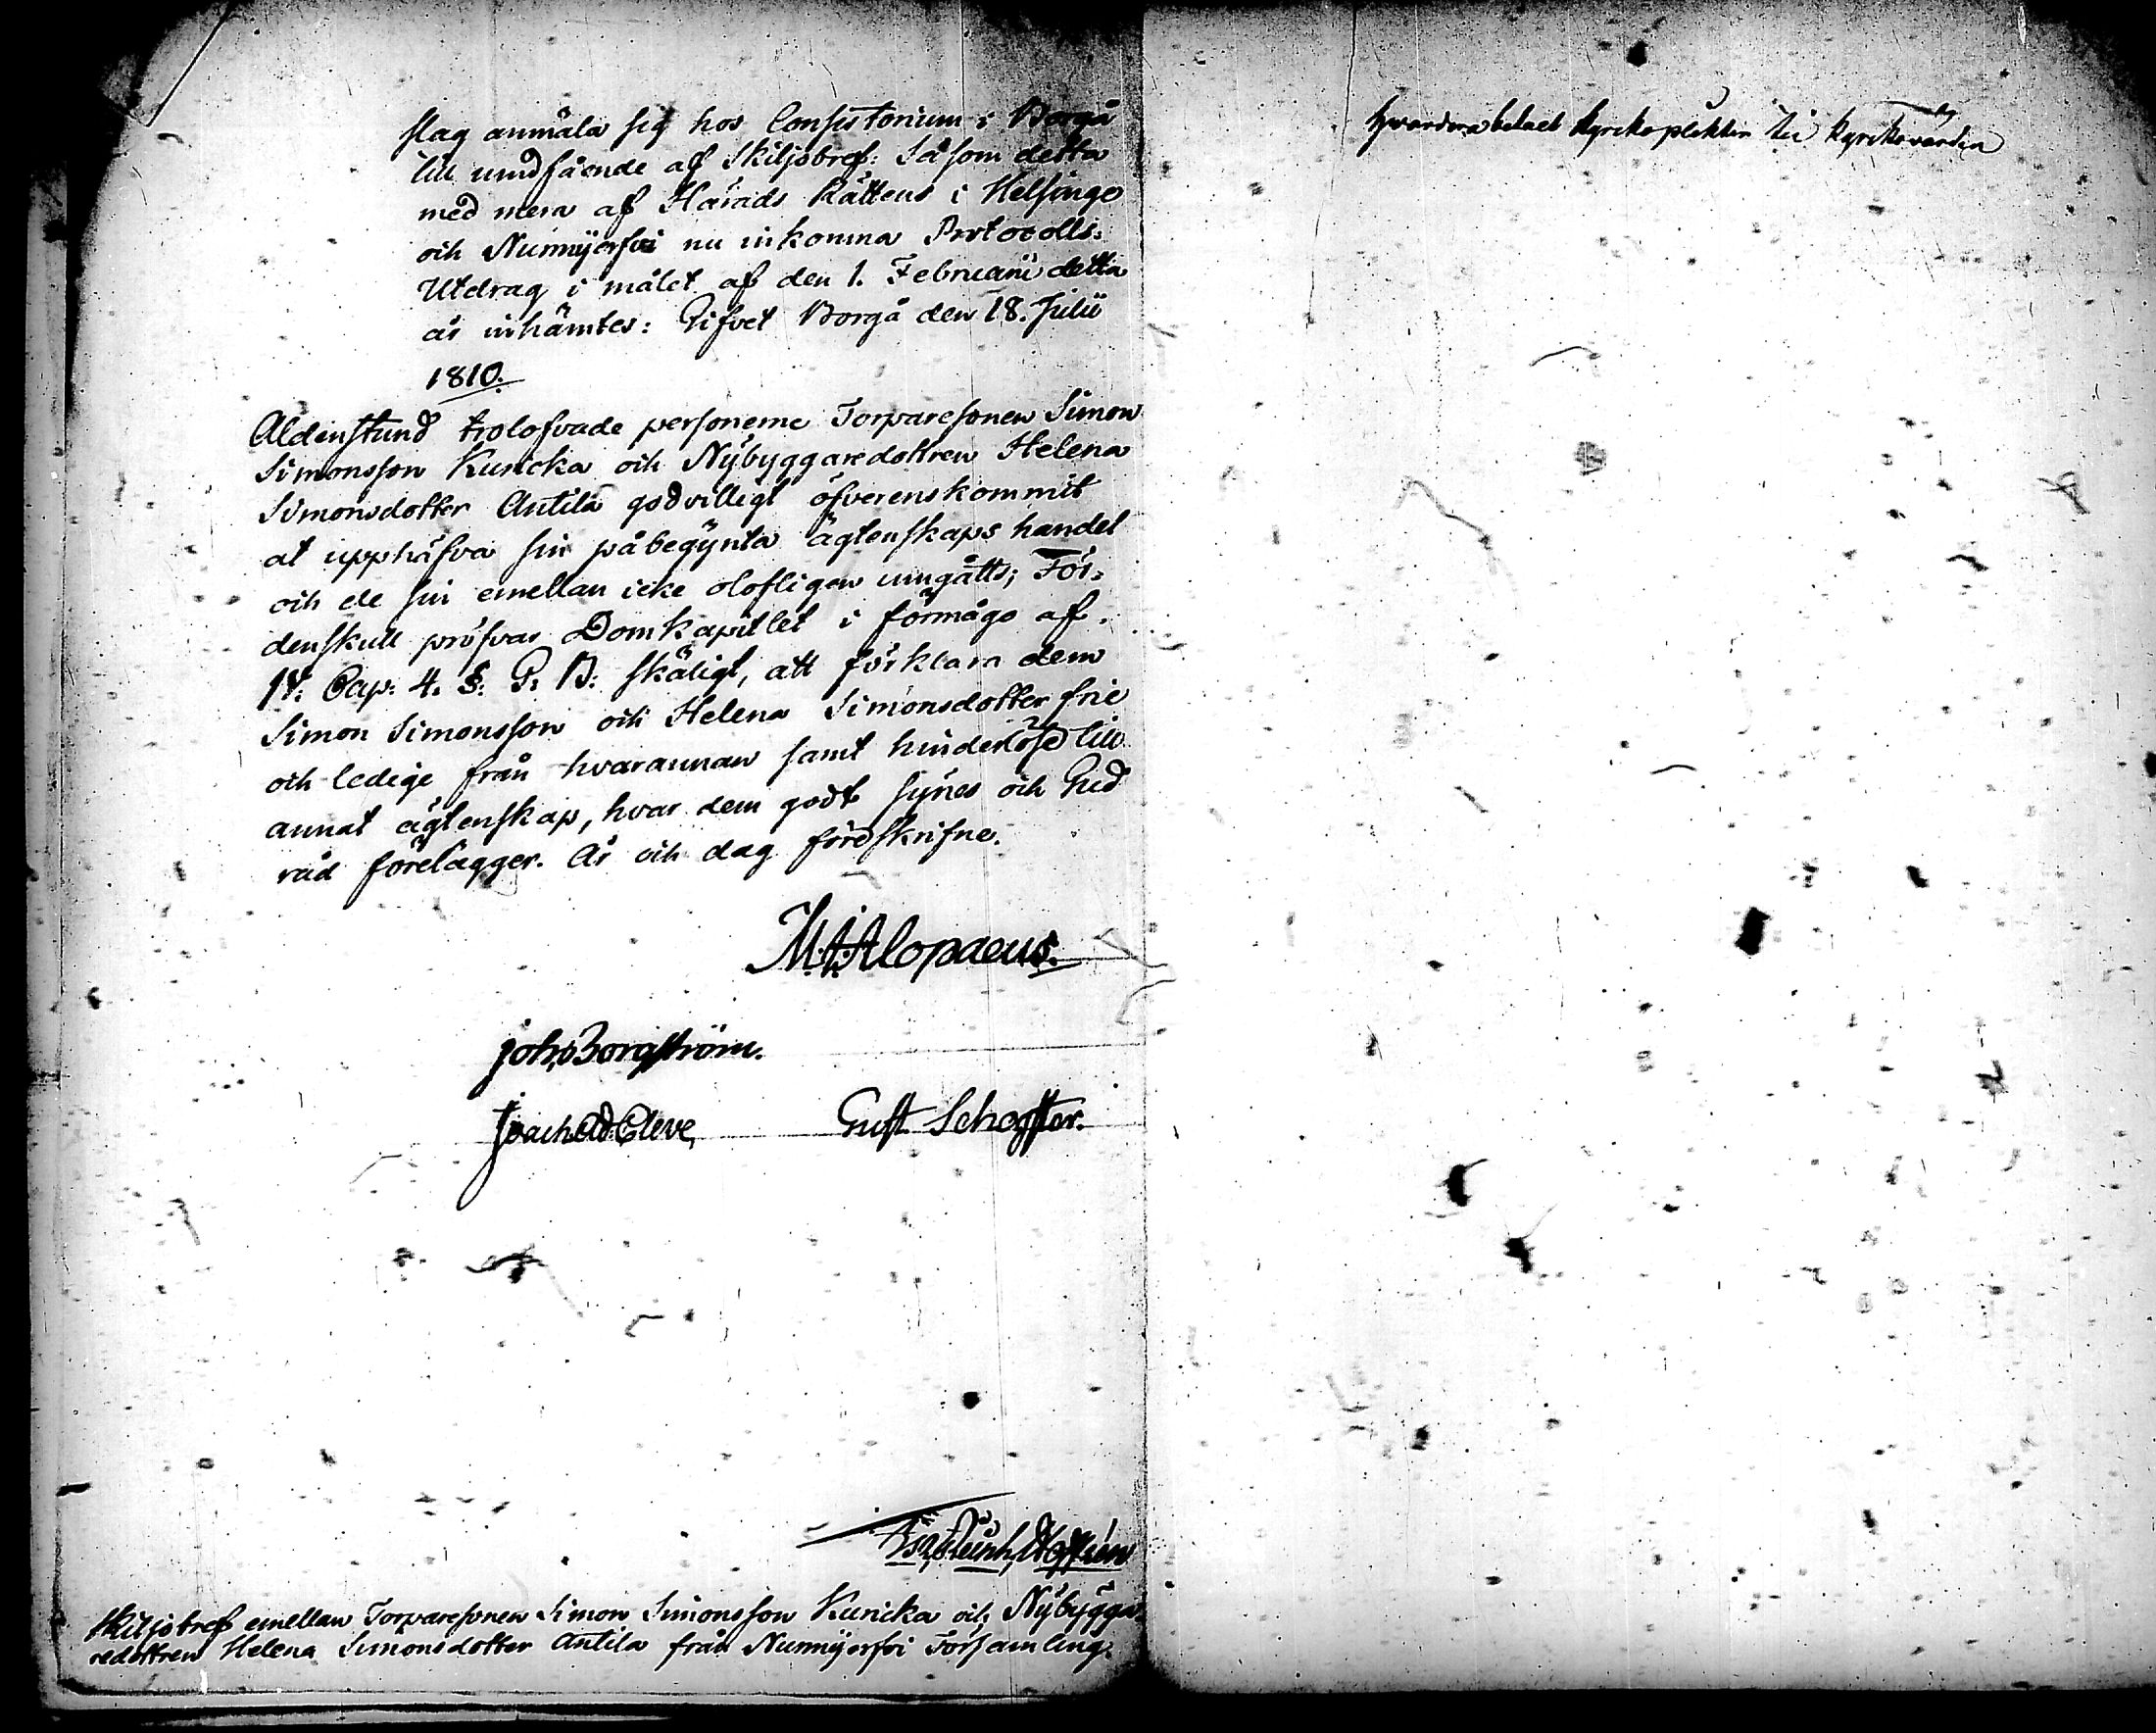 slag anmäla sig hos Consistorium i Borgå
till undfående af Skiljobref: Så som detta
med mera af Härads Rättens i Helsinge
och Nurmijerfvi nu inkomna Protocolls-
Utdrag i målet af den 1. Februarii detta
år inhämtes: Gifvet Borgå den 18. Julii
1810.
Aldenstund trolofvade personerne Torparesonen Simon
Simonsson Kuricka och Nybyggaredottren Helena
Simonsdotter Antila godvilligt öfverenskommit
at upphäfva sin påbegynta ägtenskaps handel
och de sin emellan icke olofligen umgåtts; För-
denskull pröfvar Domkapitlet i förmågo af
14: Cap: 4. §: G: B: skäligt, att förklara dem
Simon Simonsson och Helena Simonsdotter frie
och ledige från hvarannan samt hinderlöse till
annat ägtenskap, hvar dem godt synes och Gud
råd förelägger. År och dag föreskrifne.
M. J. Alopaeus.
Joh. Borgström.
Joach. Ad. Cleve, Gust. Schogster.
Skiljobref emellan Torparesonen Simon Simonsson Kuricka och Nybygga-
redottren Helena Simonsdotter Antila från Nurmijerfvi Församling.
hvardera betalt kyrkoplikten till kyrkovärden